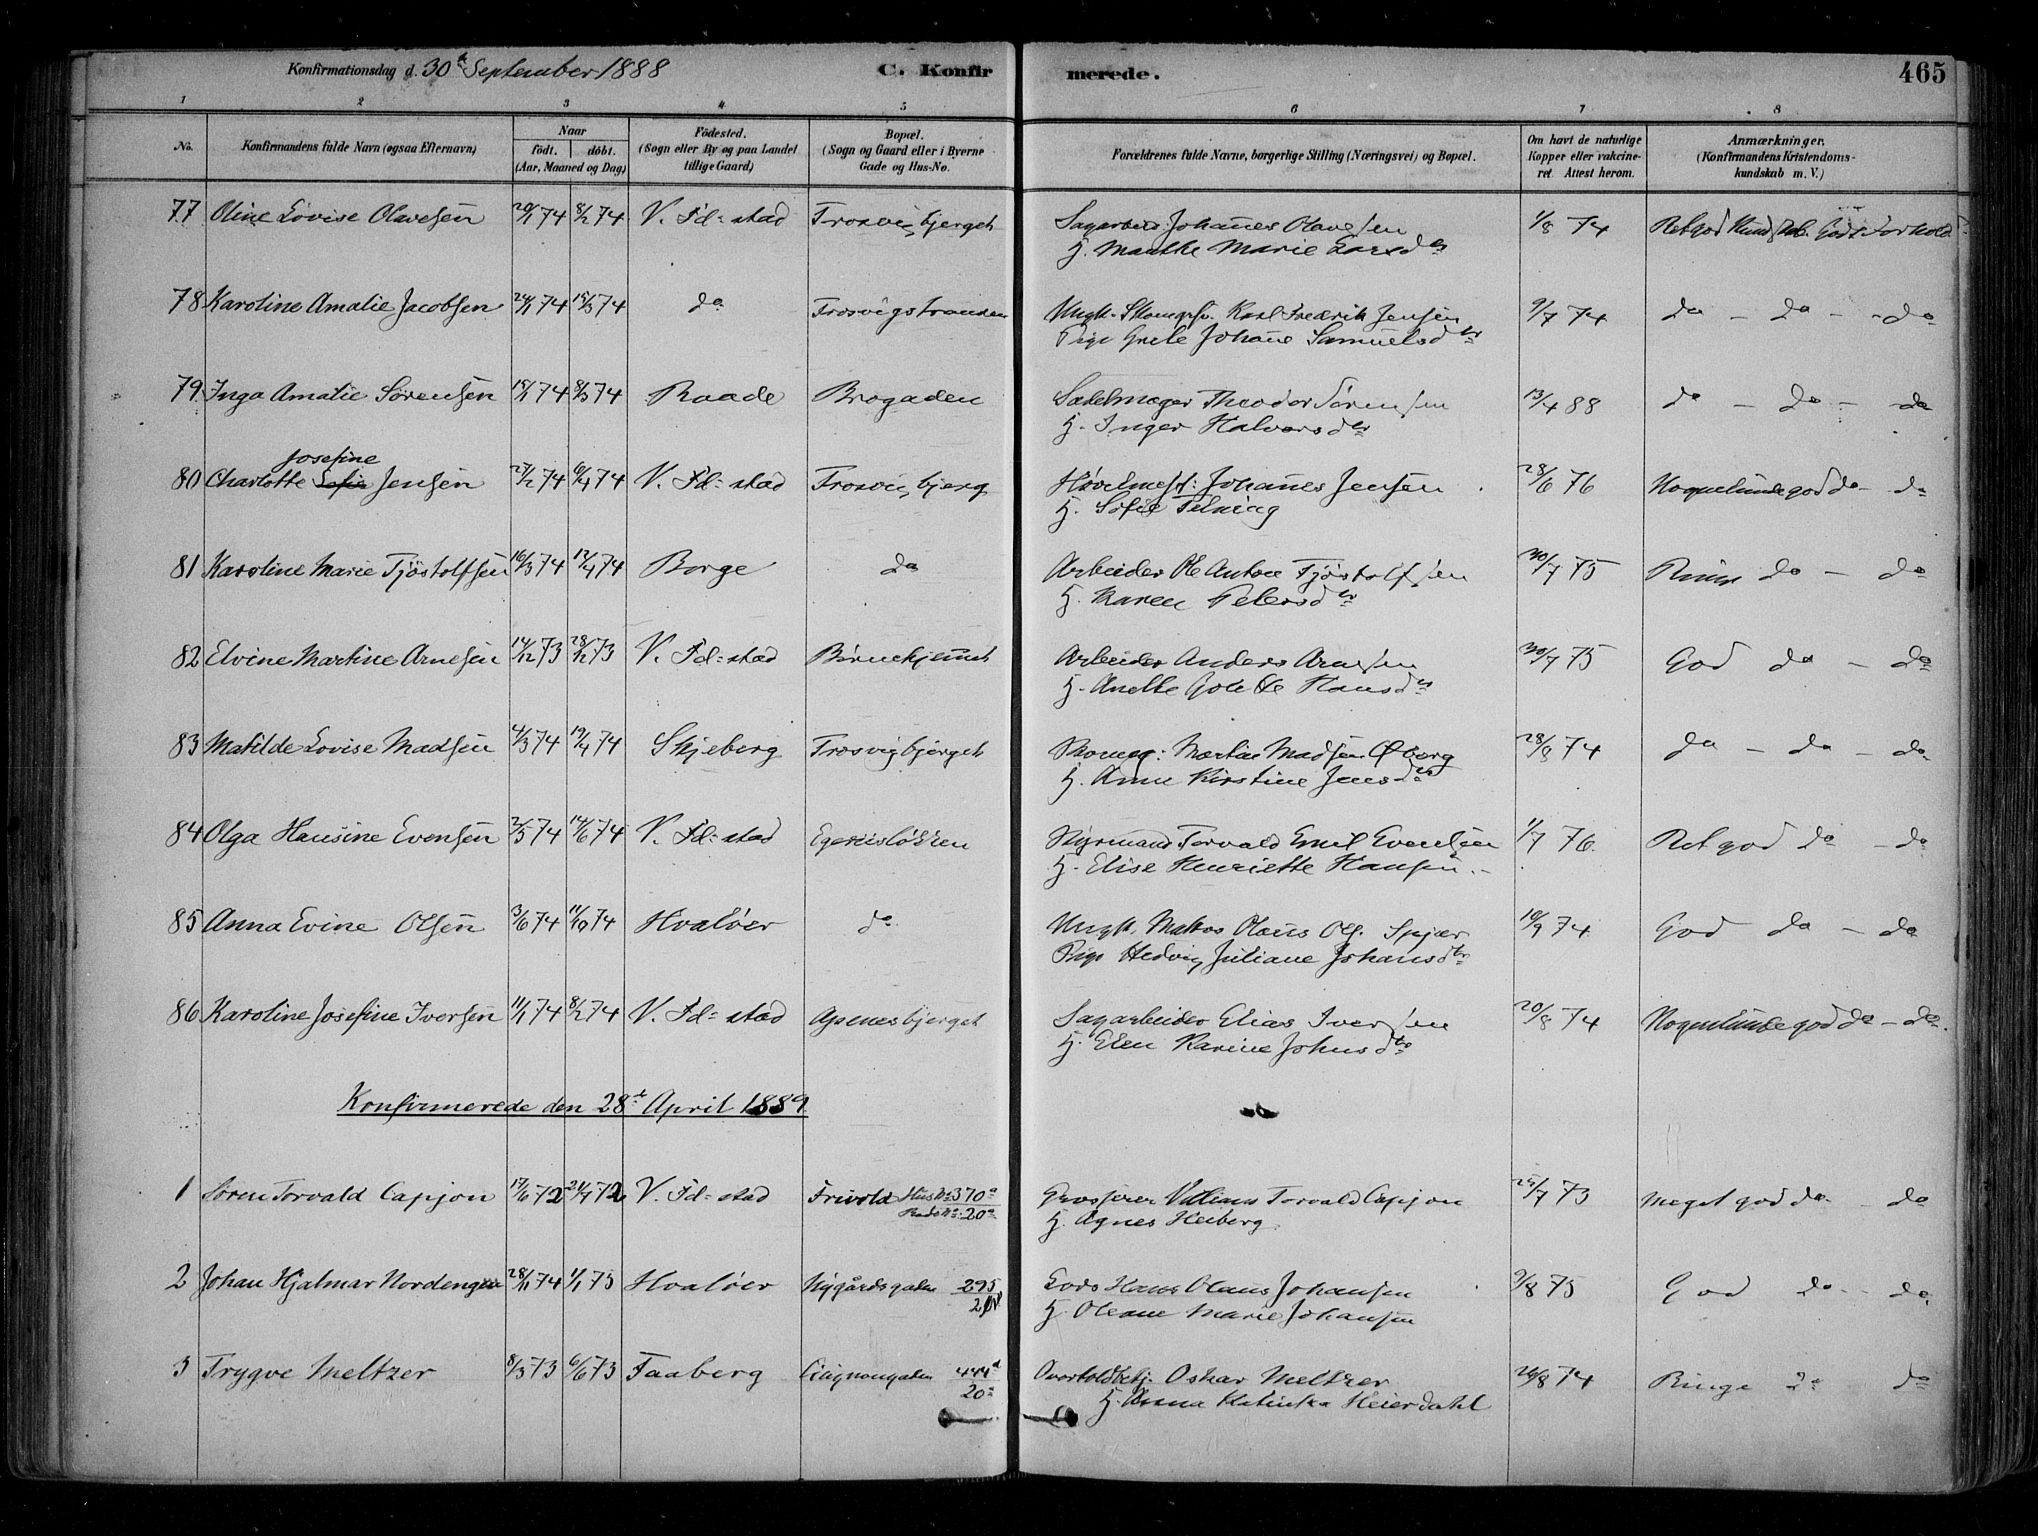 Konfirmationsdag d. 30te September 1888 C. Konfir merede. 465
1 2 3 4 5 6 7 8
No. Konfirmandens fulde Navn (ogsaa Efternavn) Naar födt. döbt. (Aar, Maaned og Dag) Födested. (Sogn eller By og paa Landet tillige Gaard) Bopæl. (Sogn og Gaard eller i Byerne Gade og Hus-No. Forældrenes fulde Navne, borgerlige Stilling (Næringsvei) og Bopæl. Om havt de naturlige Kopper eller vakcineret. Attest herom. Anmærkninger, (Konfirmandens Kristendomskundskab m. V.)
77 Oline Lovise Olavesen 20/1 74 8/2 74 V. Fd=stad Trosvigbjerget Sagarbeid. Johannes Olavesen 1/8 74 Ret god Kundskab. Godt Forhold
H. Mathe Marie Larsdtr
78 Karoline Amalie Jacobsen 24/1 74 15/3 74 do Trosvigstranden Ungk. Skomgsv. Karl Fredrik Jensen 9/7 74 do - do - do
Pige Grete Johane Samuelsdtr
79 Inga Amalie Sørensen 15/1 74 8/3 74 Raade Brogaden Sadelmager Theodor Sørensen 13/4 88 do - do - do
H. Inger Halvorsdtr
Josefine
80 Charlotte Sofie Jensen 27/2 74 6/4 74 V. Fd=stad Trosvigbjerg Høvelmest: Johannes Jensen 28/6 76 Nogenlunde god do - do
H. Sofie Felning
81 Karoline Marie Tjöstolfsen 16/3 74 12/4 74 Borge do Arbeider Ole Anton Tjöstolfsen 30/7 75 Ringe do - do
H. Karen Petersdtr
82 Elvine Martine Arnesen 14/12 73 28/12 73 V. Fd=stad Arbeider Anders Arnesen 30/7 75 God do - do
H. Anette Hansdtr
83 Matilde Lovise Madsen 4/3 74 19/4 74 Skjeberg Trosvigbjerget Skomag: Martin Madsen Öberg 28/8 74 do - do - do
H. Anne Kirstine Jensdtr
84 Olga Hansine Evensen 2/5 74 14/6 74 V. Fd=stad Egerisløkken Styrmand Torvald Emil Evensen 1/7 76 Ret god do - do
H. Elise Henriette Hansen
85 Anna Evine Olsen 3/6 74 11/10 74 Hvalöer do Ungk. Matros Olaus Ols. Spjær 10/9 74 God do - do
Pige Hedvig Juliane Johansdtr
86 Karoline Josefine Iversen 11/1 74 8/2 74 V. Fd=stad Apenesbjerget Sagarbeider Elias Iversen 20/8 74 Nogenlunde god do - do
H. Elen Karine Johnsdtr
Konfirmerede den 28de April 1889
1 Søren Torvald Capjon 17/6 72 21/7 72 V. Fd=stad Frivold Hus No 370a Grosserer William Torvald Capjon 25/7 73 Meget god do - do
20a H. Agnes Heiberg
2 Johan Hjalmar Nordengen 28/11 74 1/1 75 Hvalöer Nygårdsgaten 295 Lods Hans Olaus Johansen 9/8 75 God do - do
H. Oleane Marie Johansen
3 Trygve Meltzer 8/3 73 6/6 73 Faaberg Cicignongaten 444d Overtoldbetj. Oskar Meltzer 26/8 74 Ringe do do
20a H. Anna Katinka Heierdahl